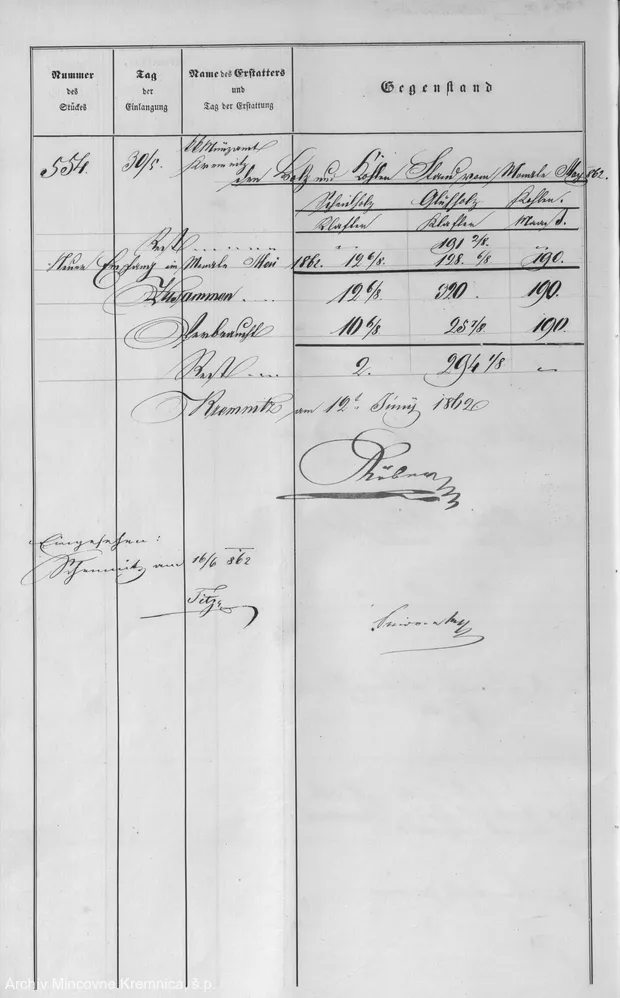 Nummer
des
Stückes
Tag
der
Einlangung
Name des Erstatters
und
Tag der Erstattung
Gegenstand
554. 30/5. Münzamt
Kremnitz
den Holz und Kohlen Stand vom Monate May 862.
Scheitholz Glühholz Kohlen.
Klafter Klafter Maas
Rest ....... „ 191 2/8. „
Neuer Empfang im Monate Mai 1862. 12 6/8 128. 6/8 190.
Zusammen .... 12 6/8 320. 190.
Verbraucht 10 6/8 25 7/8 190.
Rest .... 2. 294 1/8 „
Kremnitz am 12t Juny 1862
Eingesehen:
Schemnitz am 16/6 862
Archiv Mincovne Kremnica, š.p.